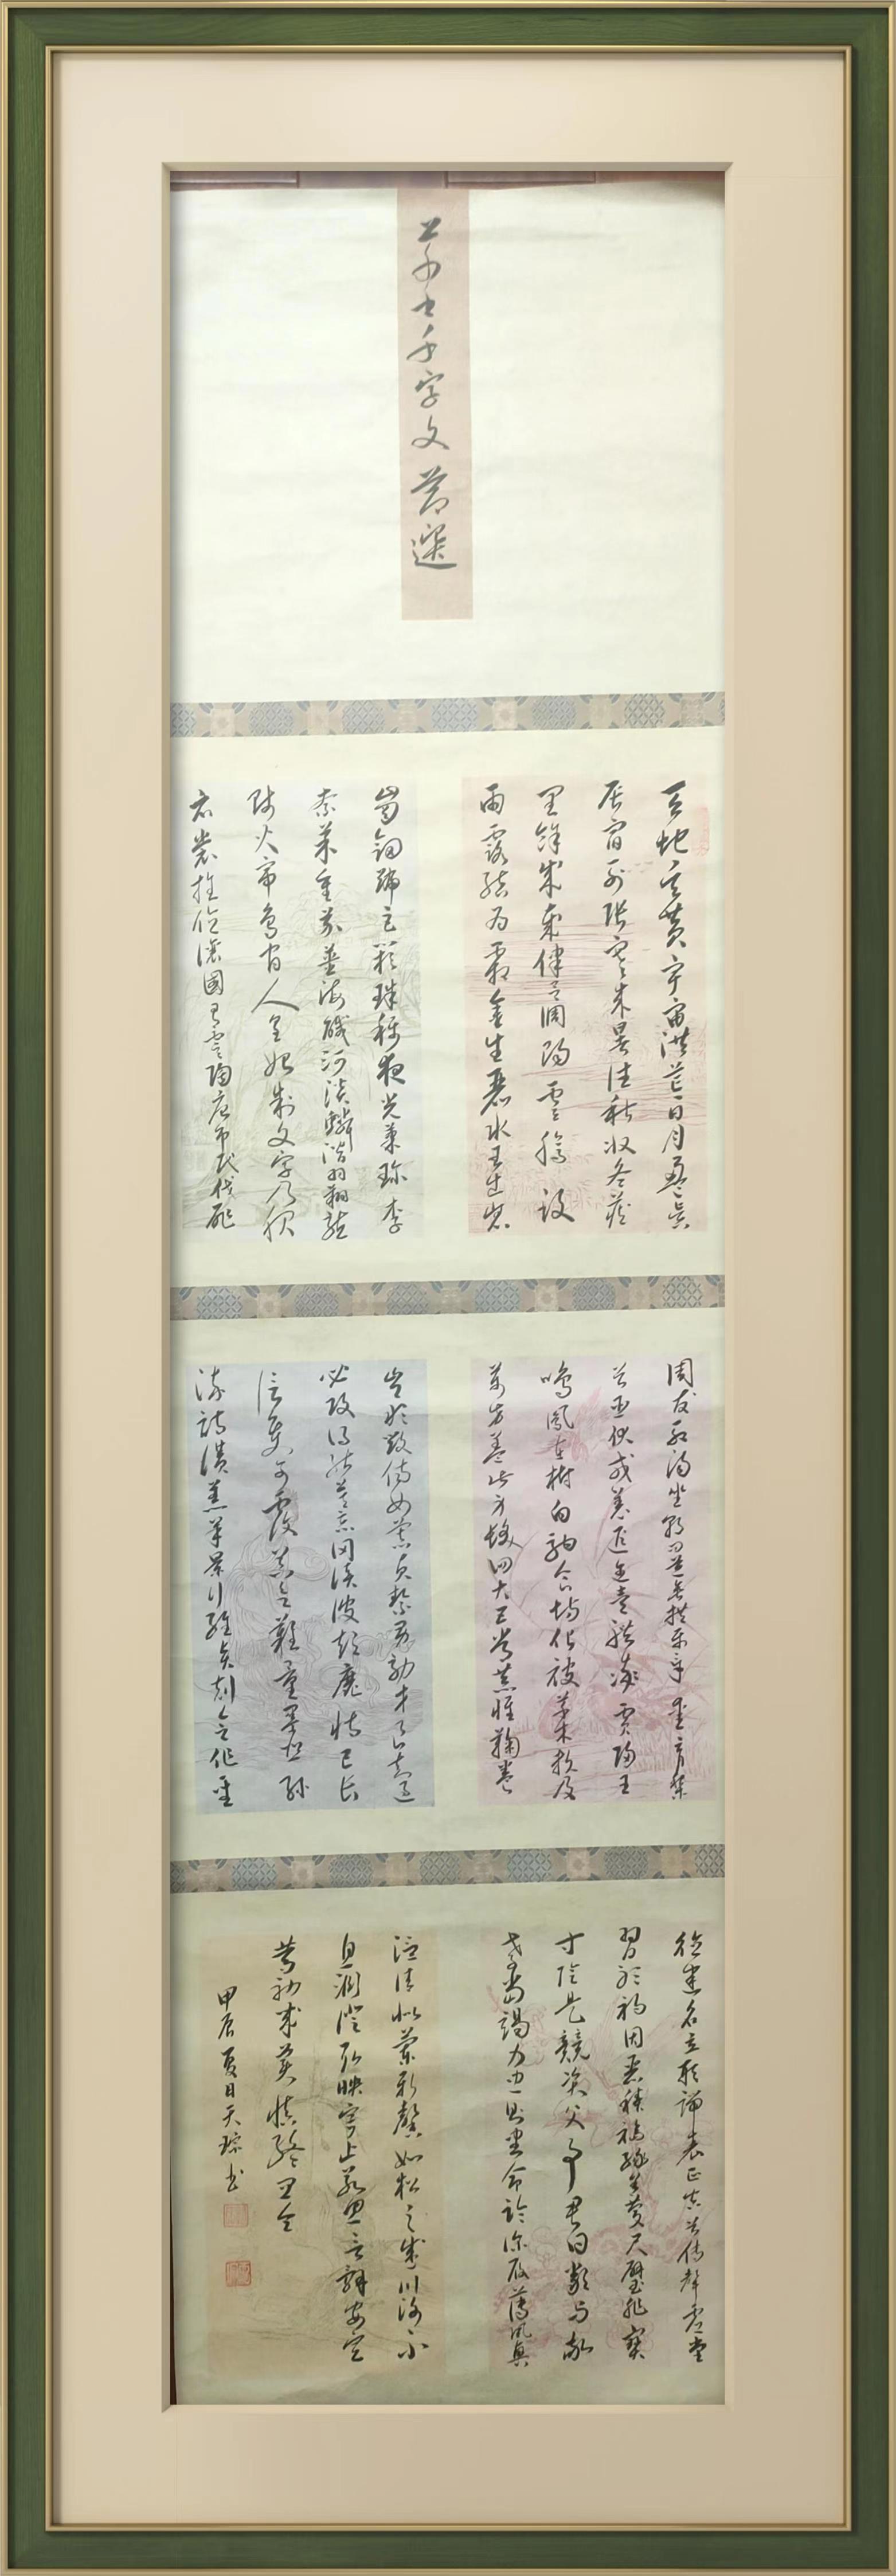 草书千字文節選
天地玄黄宇宙洪荒日月盈昃
辰宿列張寒來暑往秋收冬藏
閏餘成歲律吕調陽雲騰致
雨露結為霜金生麗水玉出崑
崗劍號巨闕珠稱夜光菓珍李
柰菜重芥薑海鹹河淡鱗潛羽翔龍
師火帝鳥官人皇始制文字乃服
衣裳推位讓國有虞陶唐弔民伐罪
周發殷湯坐朝問道垂拱平章愛育黎
首臣伏戎羌遐邇壹體率賓歸王
鳴鳳在樹白駒食場化被草木賴及
萬方蓋此身髮四大五常恭惟鞠養
豈敢毀傷女慕貞絜男效才良知過
必改得能莫忘罔談彼短靡恃己長
信使可覆器欲難量墨悲絲
染詩讚羔羊景行維賢剋念作聖
德建名立形端表正空谷傳聲虛堂
習聽禍因惡積福緣善慶尺璧非寶
寸陰是競資父事君曰嚴與敬
孝當竭力忠則盡命臨深履薄夙興
溫清似蘭斯馨如松之盛川流不
息淵澄取映容止若思言辭安定
篤初誠美慎終宜令
甲辰夏日天琮书